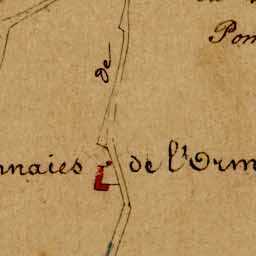 Pon
de
nnaies de l'Orm